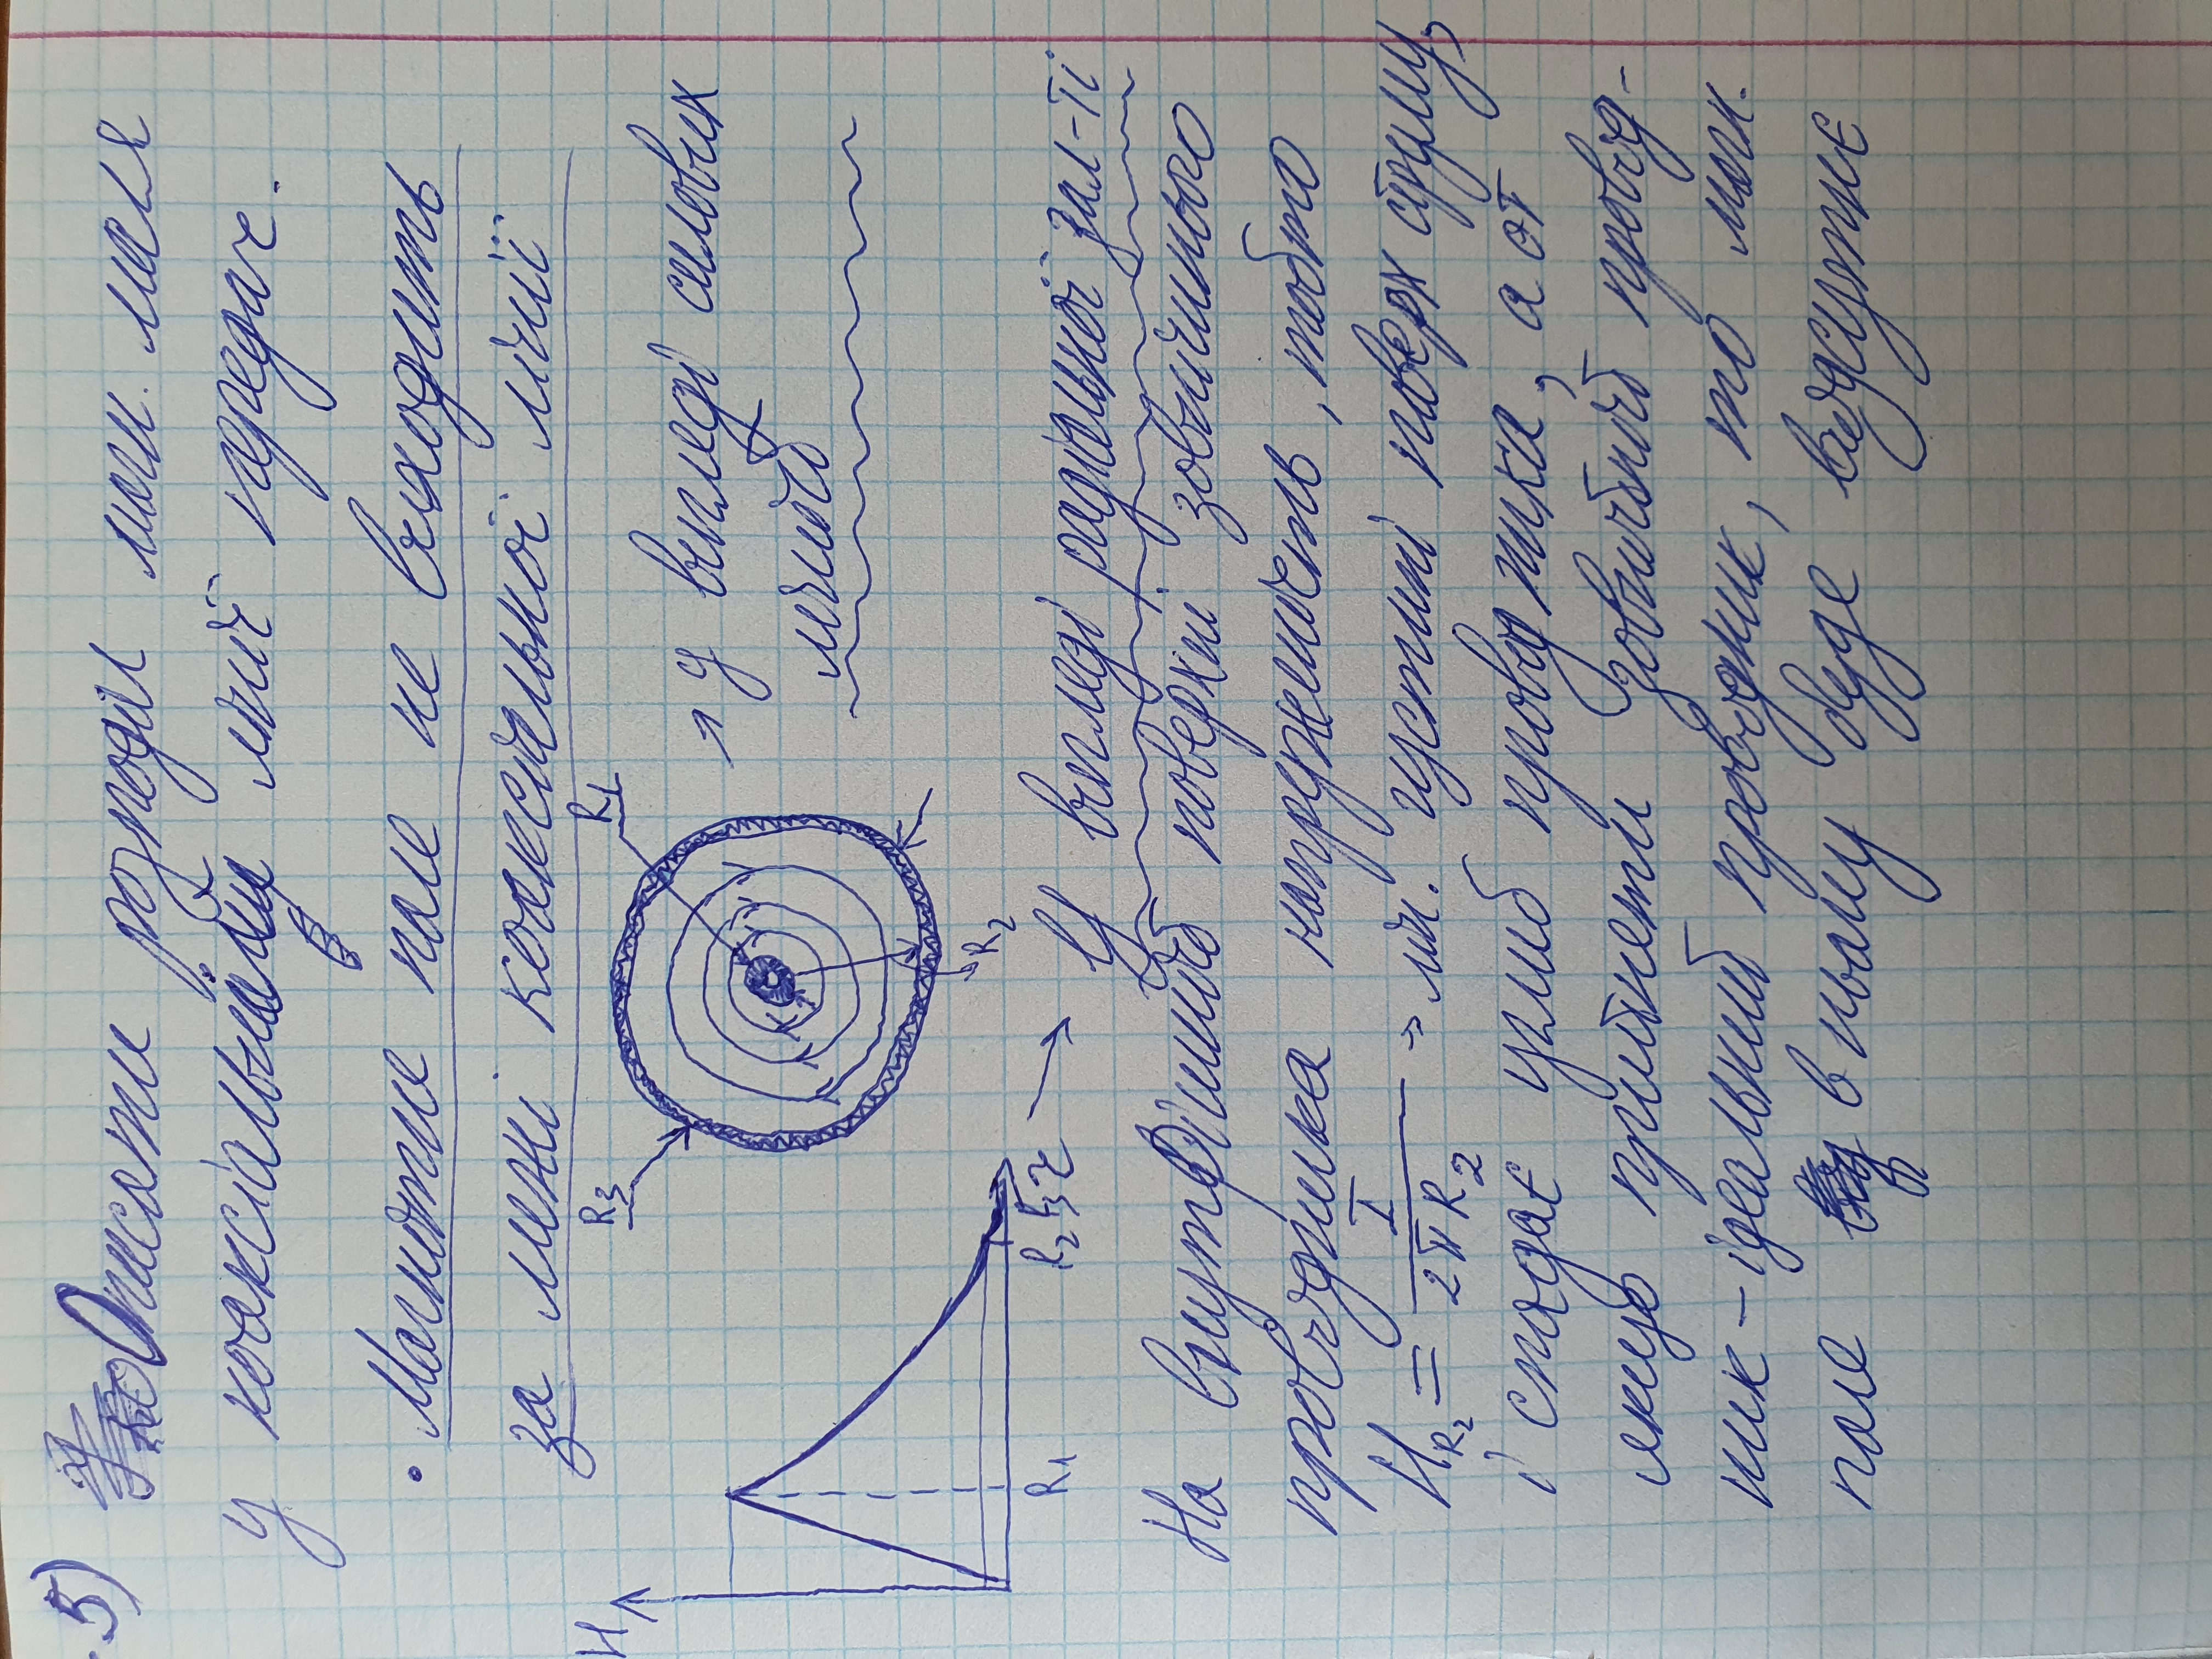 5) Описати розподіл маг. поля
у коаксіальній лінії передач.
• Магнітне поле не виходить
за межі коаксіальної лінії
R₃ R₁ → у вигляді силових
ліній
R₂
H
R₁ R₂ R₃ r → У вигляді радіальної зал-ті
На внутрішній поверхні зовнішнього
провідника напруженість, тобто
H_R₂ = I / 2πR₂ - лін. густині поверх струму,
і спадає углиб провідника, а от
якщо прийняти зовнішній провід-
ник - ідеальний провідник, то маг.
поле в ньому буде відсутнє